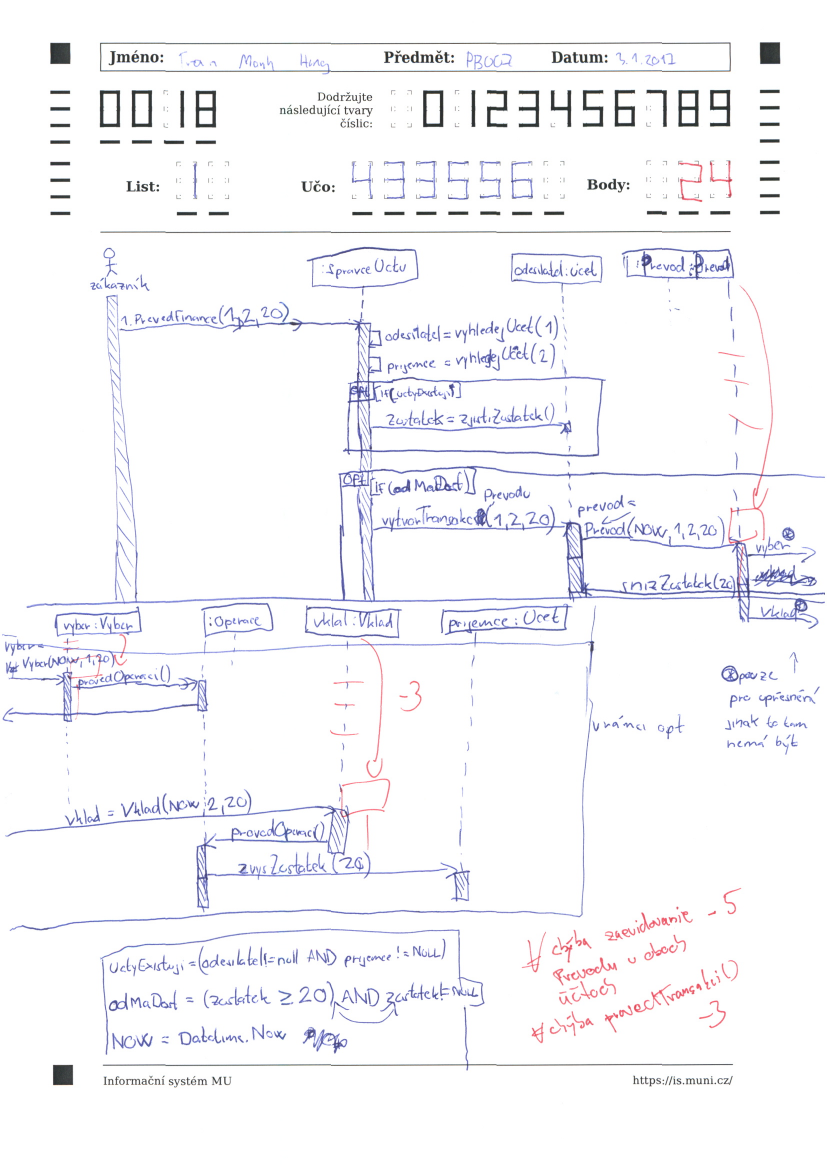 Jméno: Tran Manh Hung Předmět: PB007 Datum: 3.1.2017
0018 Dodržujte následující tvary číslic: 0123456789
List: 1 Učo: 433556 Body: 24
zákazník
:SpravceUctu
odesilatel:ucet
:Prevod
1.PrevedFinance(1,2,20)
odesilatel=vyhledejUcet(1)
prijemce = vyhledejUcet(2)
OPT [if(uctyExistuji)]
zustatek = zjistiZustatek()
OPT [if(odMaDost)]
Prevodu
vytvorTransakci(1,2,20)
prevod =
Prevod(NOW,1,2,20)
vyber
snizZustatek(20)
vklad
vyber:Vyber
:Operace
vklad:Vklad
prijemce:Ucet
vyber=
Vyber(NOW,1,20)
provedOperaci()
-3
v rámci opt
pouze
pro upřesnění
jinak to tam
nemá být
vklad = Vklad(NOW,2,20)
provedOperaci()
zvysZustatek(20)
UctyExistuji = (odesilatel!=null AND prijemce != NULL)
odMaDost = (zustatek ≥ 20) AND zustatek!=NULL
NOW = Datetime.Now
chýba zaevidovanie -5
Prevodu v oboch
účtoch
chýba provedTransakci()
-3
Informační systém MU https://is.muni.cz/